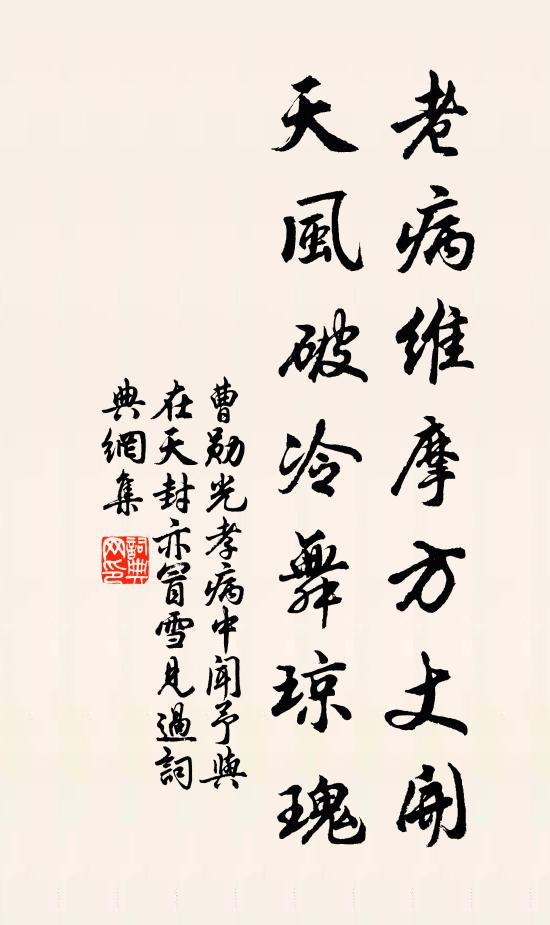 老病維摩方丈開
天風破冷舞瓊瑰
曹勛光孝病中聞予與
在天封亦冒雪見過詞
典網集
詞典网印